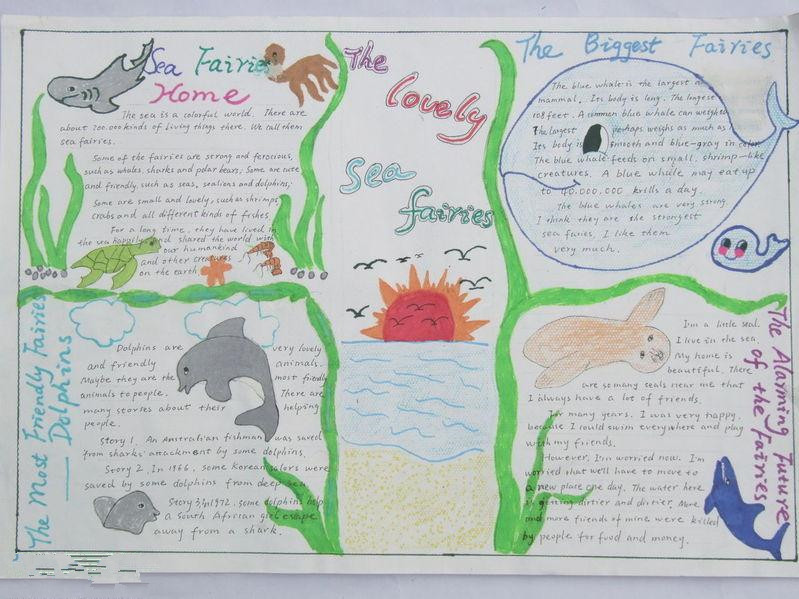 Sea Fairies
Home
The sea is a colorful world. There are
about 200.000 kinds of living things there. We call them
sea fairies.
Some of the fairies are strong and ferocious,
such as whales, sharks and polar bears, Some are cute
and friendly, such as seas, sealions and dolphins;
Some are small and lovely, such as shrimps,
crabs and all different kinds of fishes
For a long time, they have lived in
the sea happily and shared the world with
our humankind
and other creatures
on the earth
The
lovely
sea
fairies
The Biggest Fairies
The blue whale is the largest a
mammal. Its body is long. The largest
108 feet. A common blue whale can weigh to
The largest perhaps weighs as much as
Its body is smooth and blue-gray in color.
The blue whale feeds on small, shrimp-like
creatures. A blue whale may eat up
to 40.000.000 krills a day.
The blue whales are very strong
I think they are the strongest
sea faries, I like them
very much.
The Most Friendly Fairies
— Dolphins
Dolphins are very lovely
and friendly animals.
Maybe they are the most friendly
animals to people. There are
many stories about their helping
people.
Story 1. An Australian fishman was saved
from sharks' attackment by some dolphins.
Story 2. In 1966, some Korean sailors were
saved by some dolphins from deep sea
Story 3. In 1972, some dolphins help
a South African girl escape
away from a shark.
The Alarming Future
of the fairies
I'm a little seal.
I live in the sea.
My home is
beautiful. There
are so many seals near me that
I always have a lot of friends.
For many years. I was very happy,
because I could swim everywhere and play
with my friends.
However, I'm worried now. I'm
worried that we'll have to move to
a new place one day. The water here
is getting dirtier and dirtier. More
and more friends of mine were killed
by people for food and money.